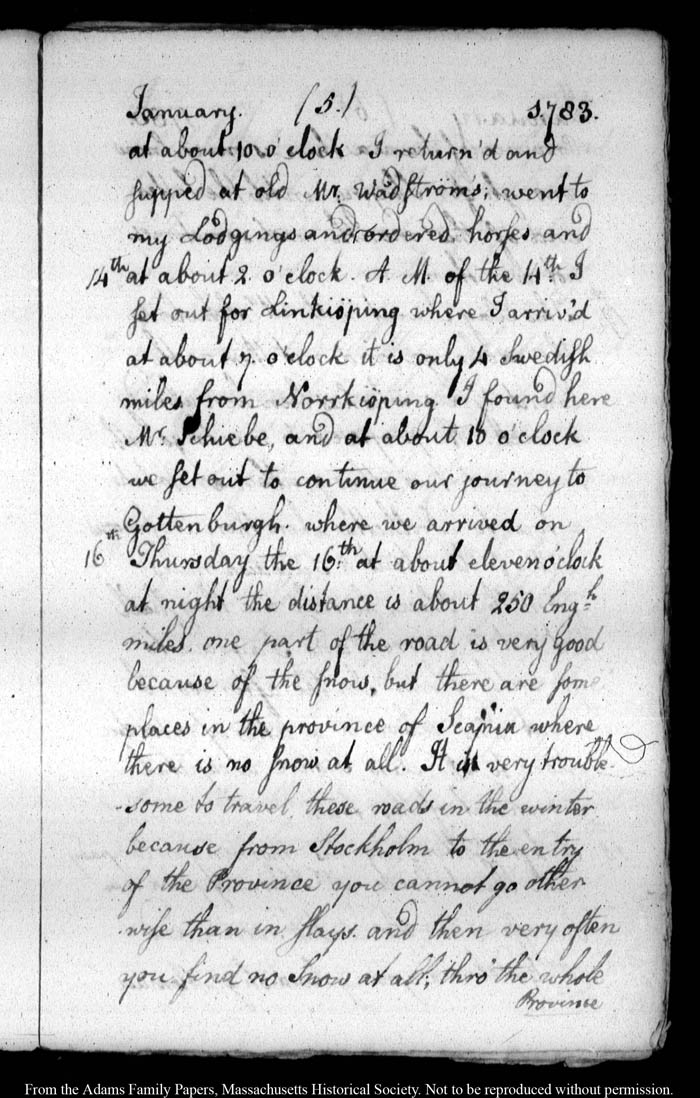 January. (5.) 1783.
at about 10 o'clock I return'd and
supped at old Mr. Wadströms; went to
my Lodgings and ordered horses and
14th at about 2. o'clock. A. M. of the 14th. I
set out for Linkiöping where I arriv'd
at about 7. o'clock it is only 4 Swedish
miles from Norrkiöping I found here
Mr. Schiebe, and at about 10 o'clock
we set out to continue our journey to
Gottenburgh. where we arrived on
16th Thursday the 16.th at about eleven o'clock
at night the distance is about 250 Engh
miles. one part of the road is very good
because of the snow, but there are some
places in the province of Scania where
there is no snow at all. It is very trouble-
-some to travel these roads in the winter
because from Stockholm to the entry
of the Province you cannot go other
-wise than in slays. and then very often
you find no snow at all; thro' the whole
Province
From the Adams Family Papers, Massachusetts Historical Society. Not to be reproduced without permission.